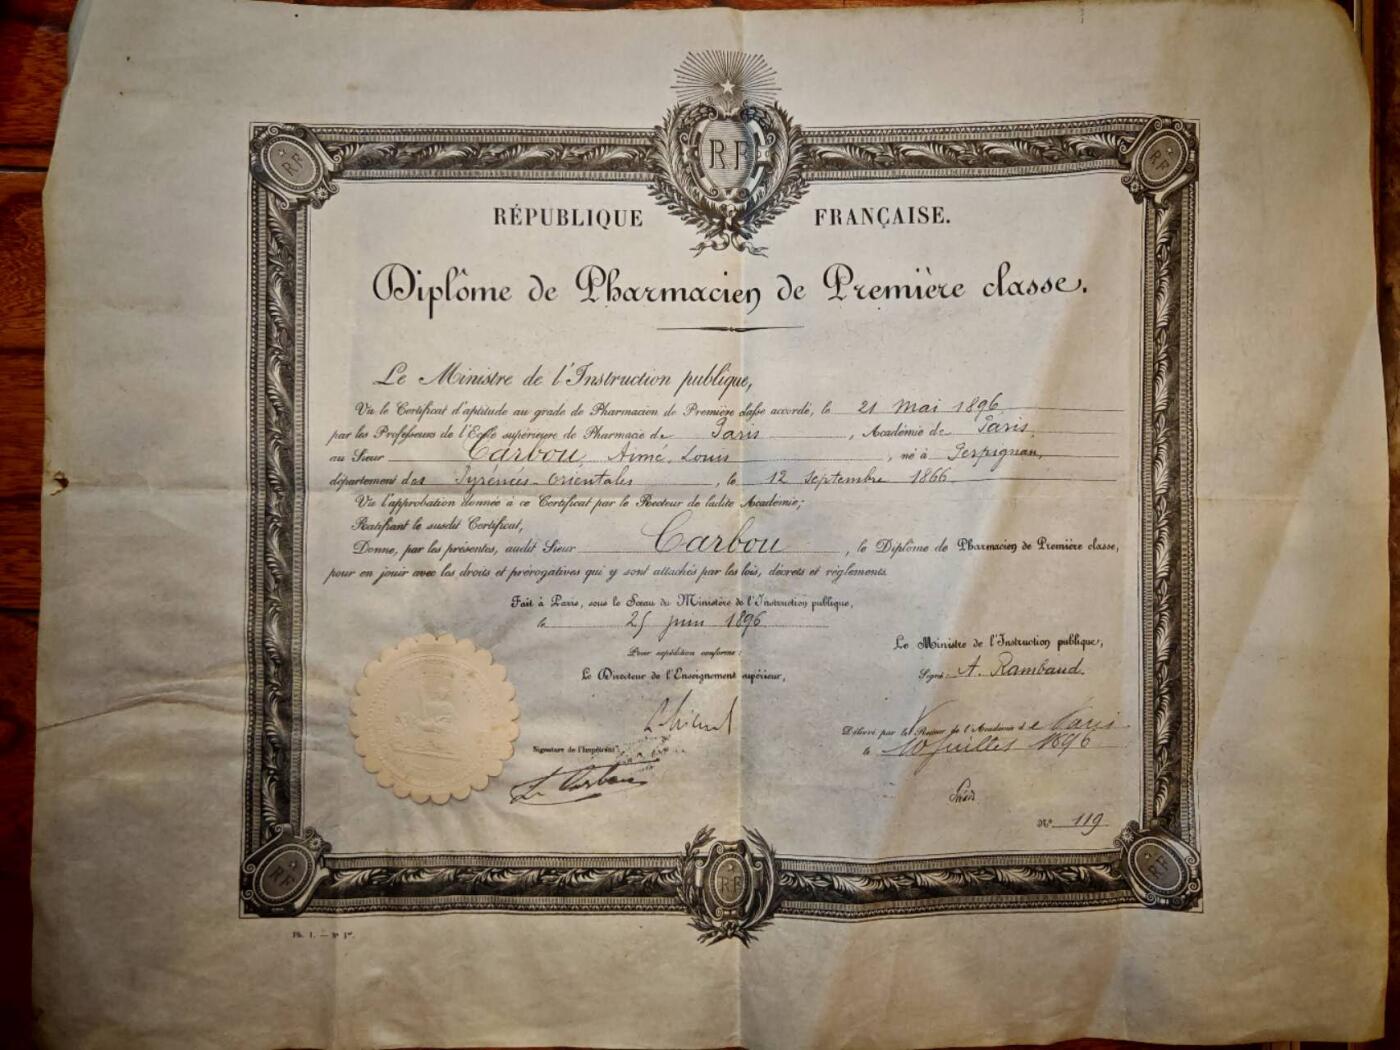 RF
RF
RF
RÉPUBLIQUE FRANÇAISE.
Diplôme de Pharmacien de Première classe.
Le Ministre de l'Instruction publique,
Vu le Certificat d'aptitude au grade de Pharmacien de Première classe accordé, le 21 mai 1896
par les Professeurs de l'École supérieure de Pharmacie de Paris, Académie de Paris,
au Sieur Carbou, Aimé, Louis, né à Perpignan,
département des Pyrénées-Orientales, le 12 septembre 1866
Vu l'approbation donnée à ce Certificat par le Recteur de ladite Académie;
Ratifiant le susdit Certificat,
Donne, par les présentes, audit Sieur Carbou, le Diplôme de Pharmacien de Première classe,
pour en jouir avec les droits et prérogatives qui y sont attachés par les lois, décrets et règlements.
Fait à Paris, sous le Sceau du Ministère de l'Instruction publique,
le 25 juin 1896
Pour expédition conforme:
Le Directeur de l'Enseignement supérieur,
Le Ministre de l'Instruction publique,
Signé: A. Rambaud.
Délivré par le Recteur de l'Académie de Paris
le 10 juillet 1896
Signature de l'Impétrant
L. Carbou
N° 119
RF
RF
RF
Ph. 1. — N° 1er.